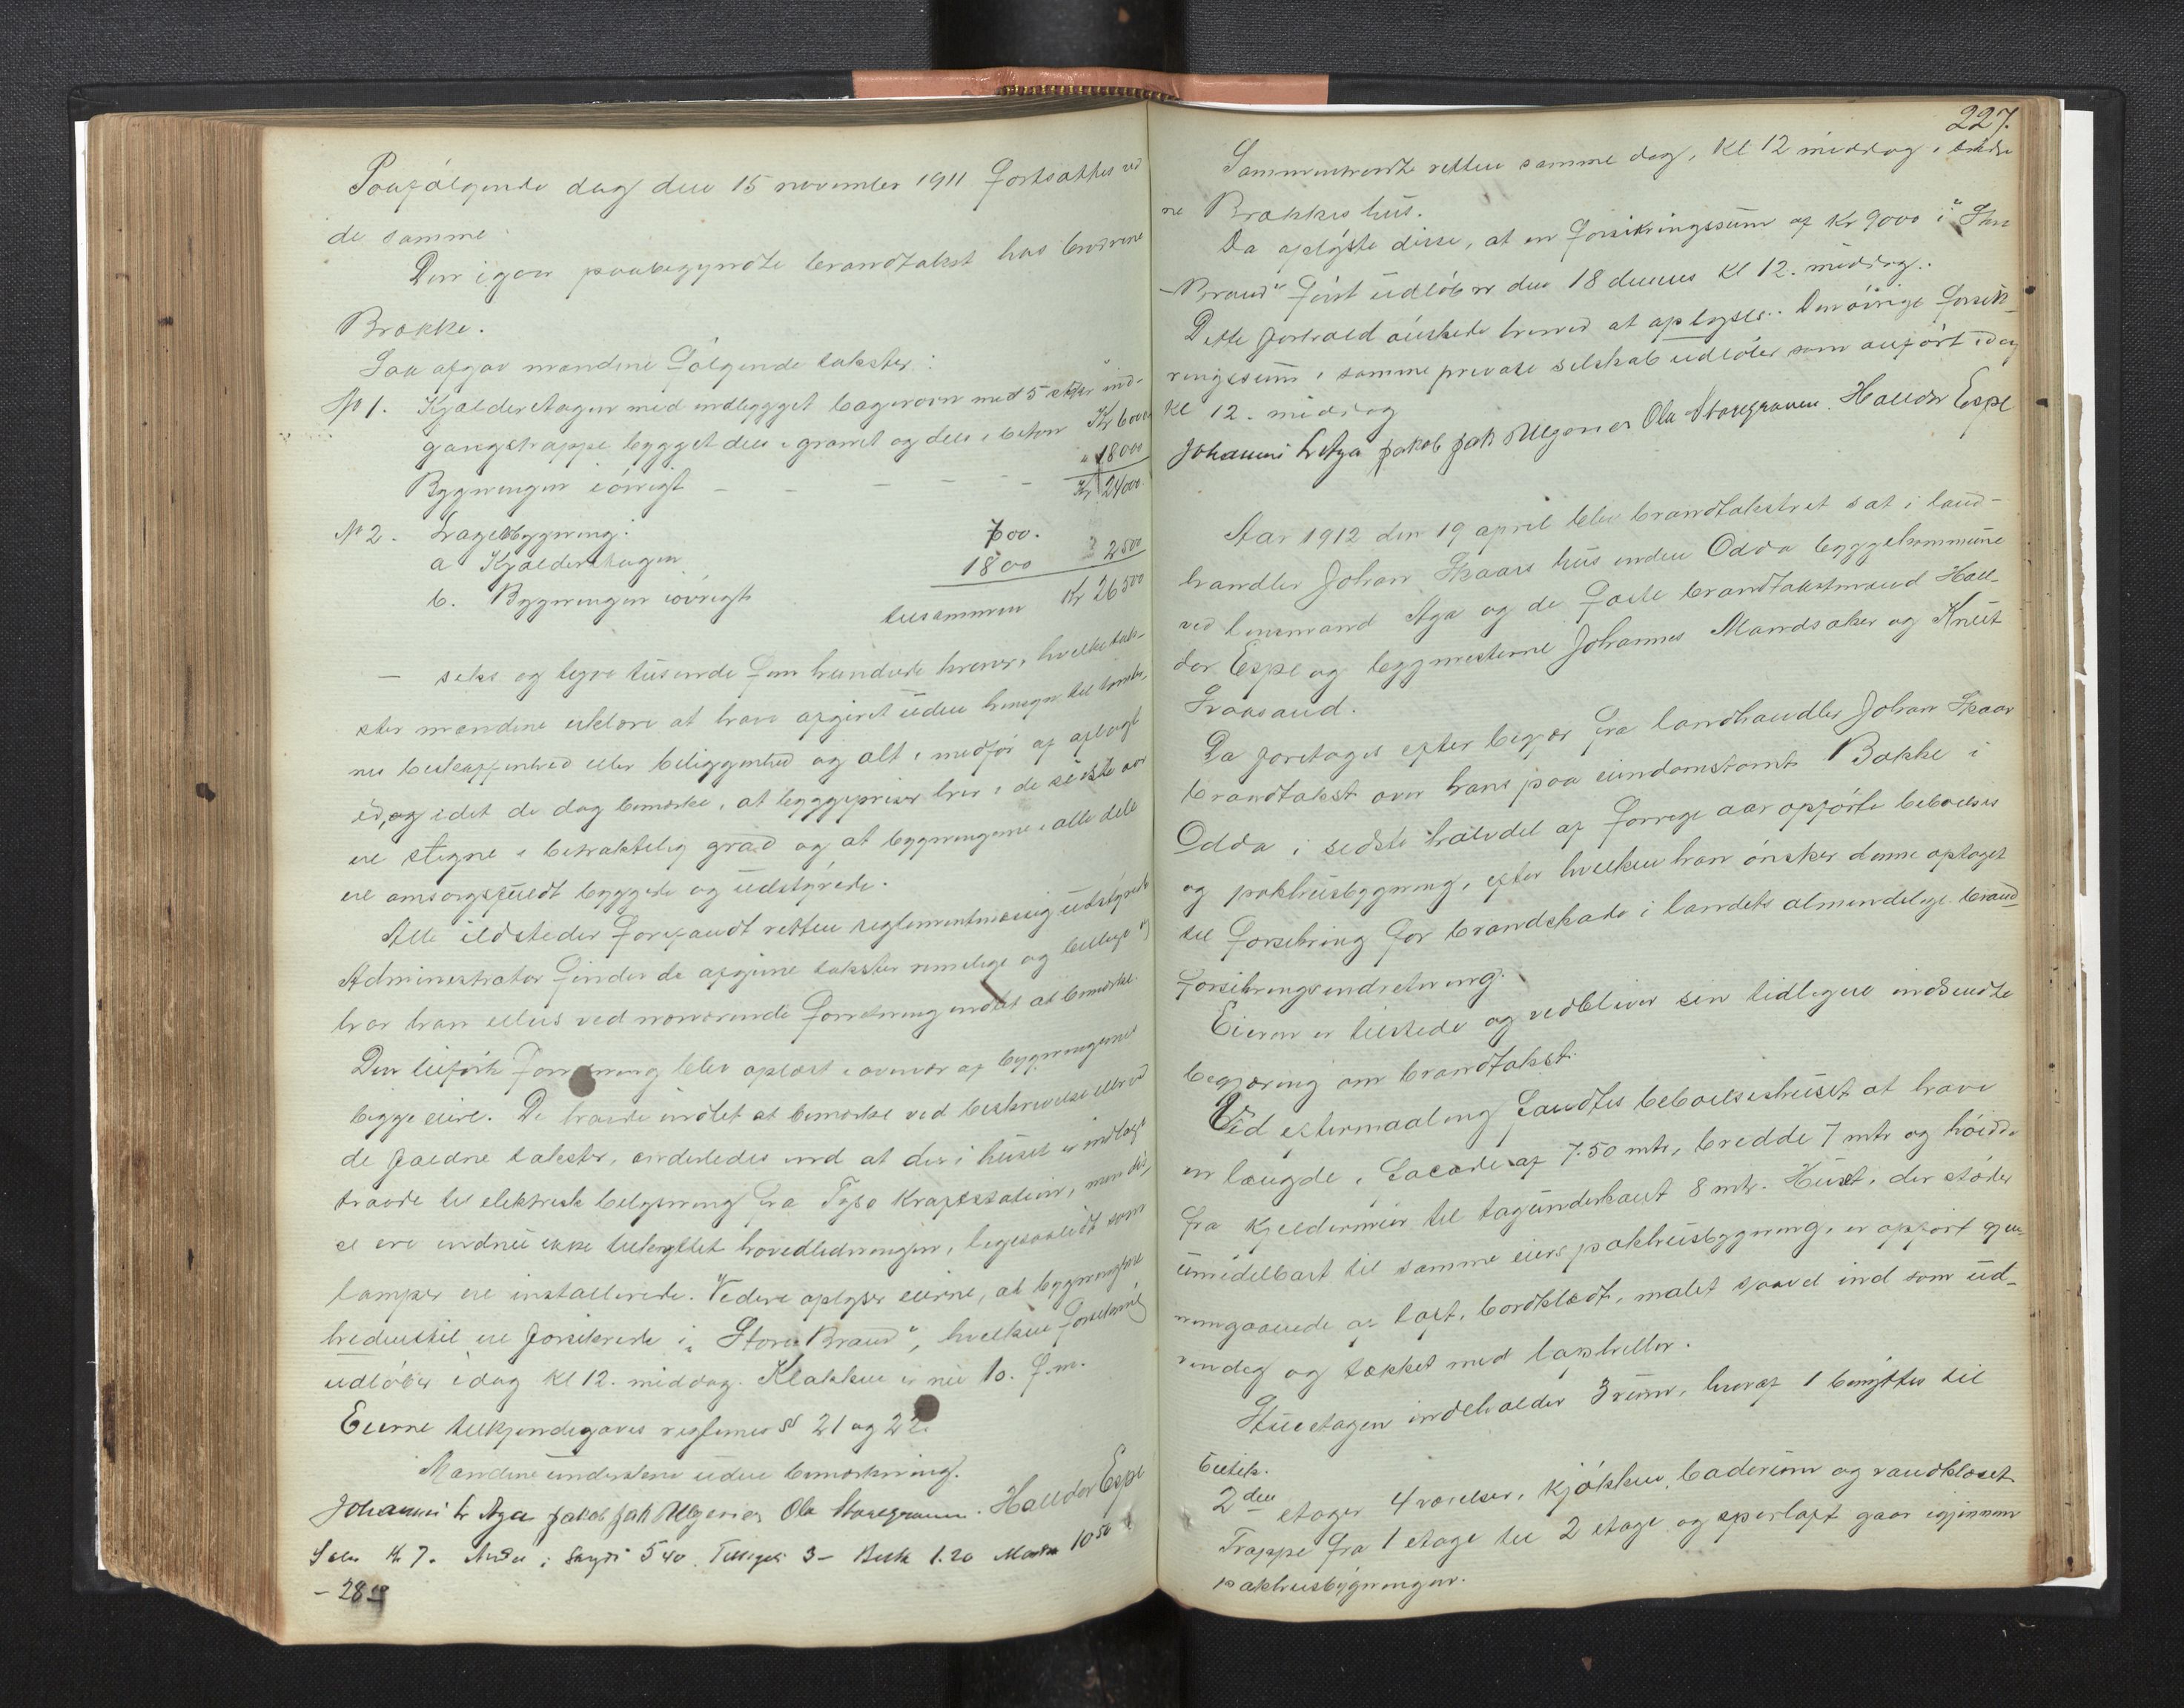 Paafølgende dag den 15 november 1911 fortsattes ved
de samme
Den igaar paabegyndte brandtakst hos brødrene
Brakke.
Saa afgav mændene følgende takster:
No 1. Kjælderetagen med indbygget bagerovn med 5 etager ind-
gangstrappe bygget dels i granit og dels i beton Kr 6000
Bygningen iøvrigt - - - - - - " 18000
Kr 24000.
No 2. Lagerbygning:
a Kjælderetagen 700.
b. Bygningen iøvrigt 1800 2500
tilsammen Kr 26500
- seks og tyve tusinde fem hundrede kroner, hvilke tak-
ster mændene erklære at have afgivet uden hensyn til tomte-
nes beskaffenhed eller beliggenhed og alt i medfør af aflagt
ed, og idet de dog bemærke, at byggepriser her i de sidste aar
ere stegne i betraktelig grad og at bygningerne i alle dele
ere omsorgsfuldt byggede og udstyrede.
Alle ildsteder forefandt retten reglementmæssig udstyrede
Administrator finder de afgivne takster rimelige og billige og
har han ellers ved nærværende forretning indtet at bemærke.
Den tilførte forretning blev oplæst i overvær af bygningernes
begge eiere. De havde indtet at bemærke ved beskrivelse eller ved
de faldne takster, anderledes end at der i huset er indlagt
traade til elektrisk belysning fra Tysse Kraftstation, men dis-
se ere endnu ikke tilknyttet hovedledningen, ligesaalidt som
lamper ere installerede. Videre oplyser eierne, at bygningerne
hedenstil ere forsikrede i "Store Brand", hvilken forsikring
udløber idag Kl 12. middag. Klokken er nu 10. f.m.
Eierne tilkjendegaves reglernes §§ 21 og 22.
Mændene underskrev uden bemærkning.
Johannes L Aga Jakob Jak Ulgenes Ola Haregraven. Halldor Espe
Kr 7. 5 40 3 - 1.20 10 50
- 28 10
227.
Sammentraadte retten samme dag, Kl 12 middag i brødre
ne Brakkes hus.
Da oplyste disse, at en forsikringssum af Kr 9000 i "Store
Brand" først udløber den 18 dennes Kl 12. middag.
Dette forhold ønskede herved at oplyses. Den øvrige forsik-
ringssum i samme private selskab udløber som anført idag
Kl 12. middag
Johannes L Aga Jakob Jak Ulgenes Ola Haregraven. Halldor Espe
Aar 1912 den 19 april blev brandtakstret sat i land-
handler Johan Skaars hus inden Odda byggekommune
ved lensmand Aga og de faste brandtakstmænd Hall-
dor Espe og bygmesterne Johannes Mandsaker og Knut
Fraasand.
Da foretages efter begjær fra landhandler Johan Skaar
brandtakst over hans paa eiendomstomt Bakke i
Odda i sidste halvdel af forrige aar opførte beboelses
og pakhusbygning, efter hvilken han ønsker denne optaget
til forsikring for brandskade i landets almindelige brand-
forsikringsindretning.
Eieren er tilstede og vedbliver sin tidligere indsendte
begjæring om brandtakst.
Ved eftermaaling fandtes beboelseshuset at have
en længde, i facade af 7.50 mtr, bredde 7 mtr og høide
fra kjeldermur til tagunderkant 8 mtr. Huset, der støder
umidelbart til samme eiers pakhusbygning, er opført gjen-
nemgaaende af laft, bordklædt, malet saavel ind som ud-
vendig og tækket med tapheller.
Stueetagen indeholder 3 rum, hvoraf 1 benyttes til
butik.
2den etager 4 værelser, kjøkken, baderum og vandkloset.
Trappe fra 1 etage til 2 etage og øperloft gaar igjennem
pakhusbygningen.